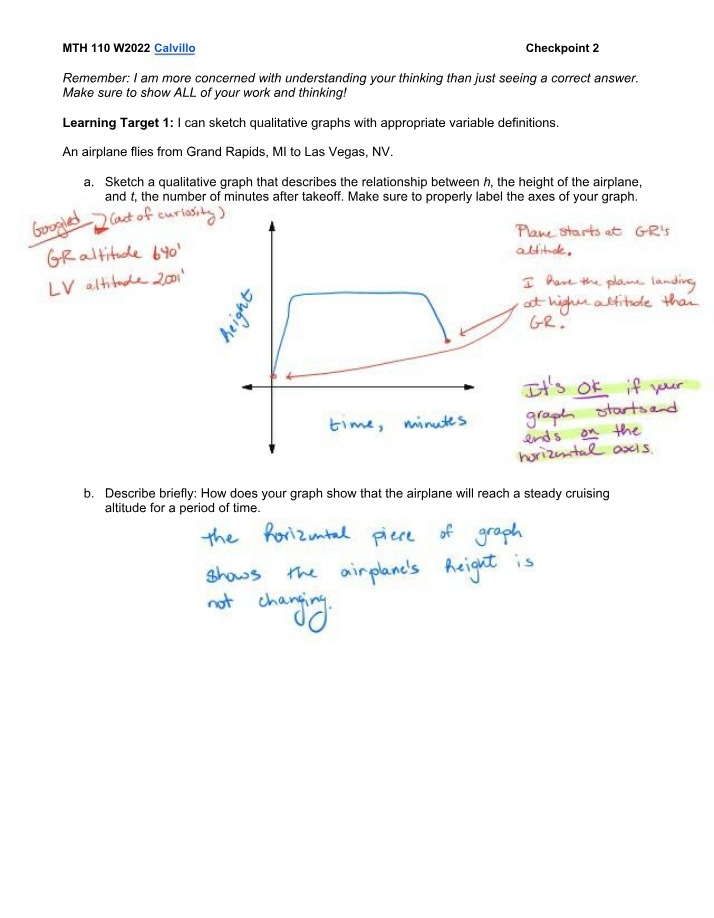 MTH 110 W2022 Calvillo Checkpoint 2
Remember: I am more concerned with understanding your thinking than just seeing a correct answer.
Make sure to show ALL of your work and thinking!
Learning Target 1: I can sketch qualitative graphs with appropriate variable definitions.
An airplane flies from Grand Rapids, MI to Las Vegas, NV.
a. Sketch a qualitative graph that describes the relationship between h, the height of the airplane,
and t, the number of minutes after takeoff. Make sure to properly label the axes of your graph.
Googled (out of curiosity)
GR altitude 640'
LV altitude 2001'
Plane starts at GR's
altitude.
I have the plane landing
at higher altitude than
GR.
height
time, minutes
It's OK if your
graph starts and
ends on the
horizontal axis.
b. Describe briefly: How does your graph show that the airplane will reach a steady cruising
altitude for a period of time.
the horizontal piece of graph
shows the airplane's height is
not changing.